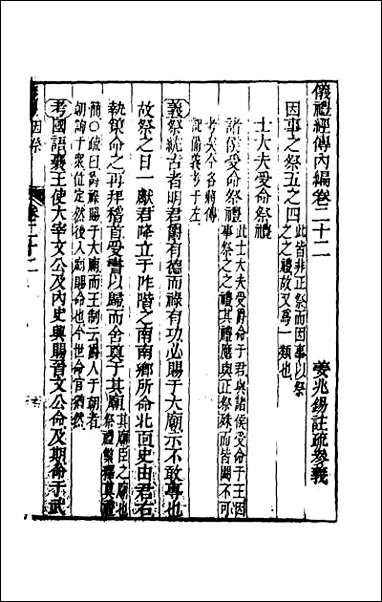 儀禮經傳內編卷二十二
姜兆錫註疏參義
因事之祭五之四此皆非正祭而因事以祭之之禮故又爲一類也
士大夫受命祭禮
此士大夫受爵命于君與諸侯受命于王因
諸侯受命祭禮事祭之之禮其禮應與正祭殊而皆闕不可
考矣今各將傳
記備義考于左
義祭統古者明君爵有德而祿有功必賜于大廟示不敢專也
故祭之日一獻君降立于阼階之南南鄉所命北面史由君右
執策命之再拜稽首受書以歸而舍奠于其廟
簡〇疏曰爵祿賜于大廟而王制云爵人于朝者
考國語襄王使大宰文公及內史興賜晉文公命及期命于武